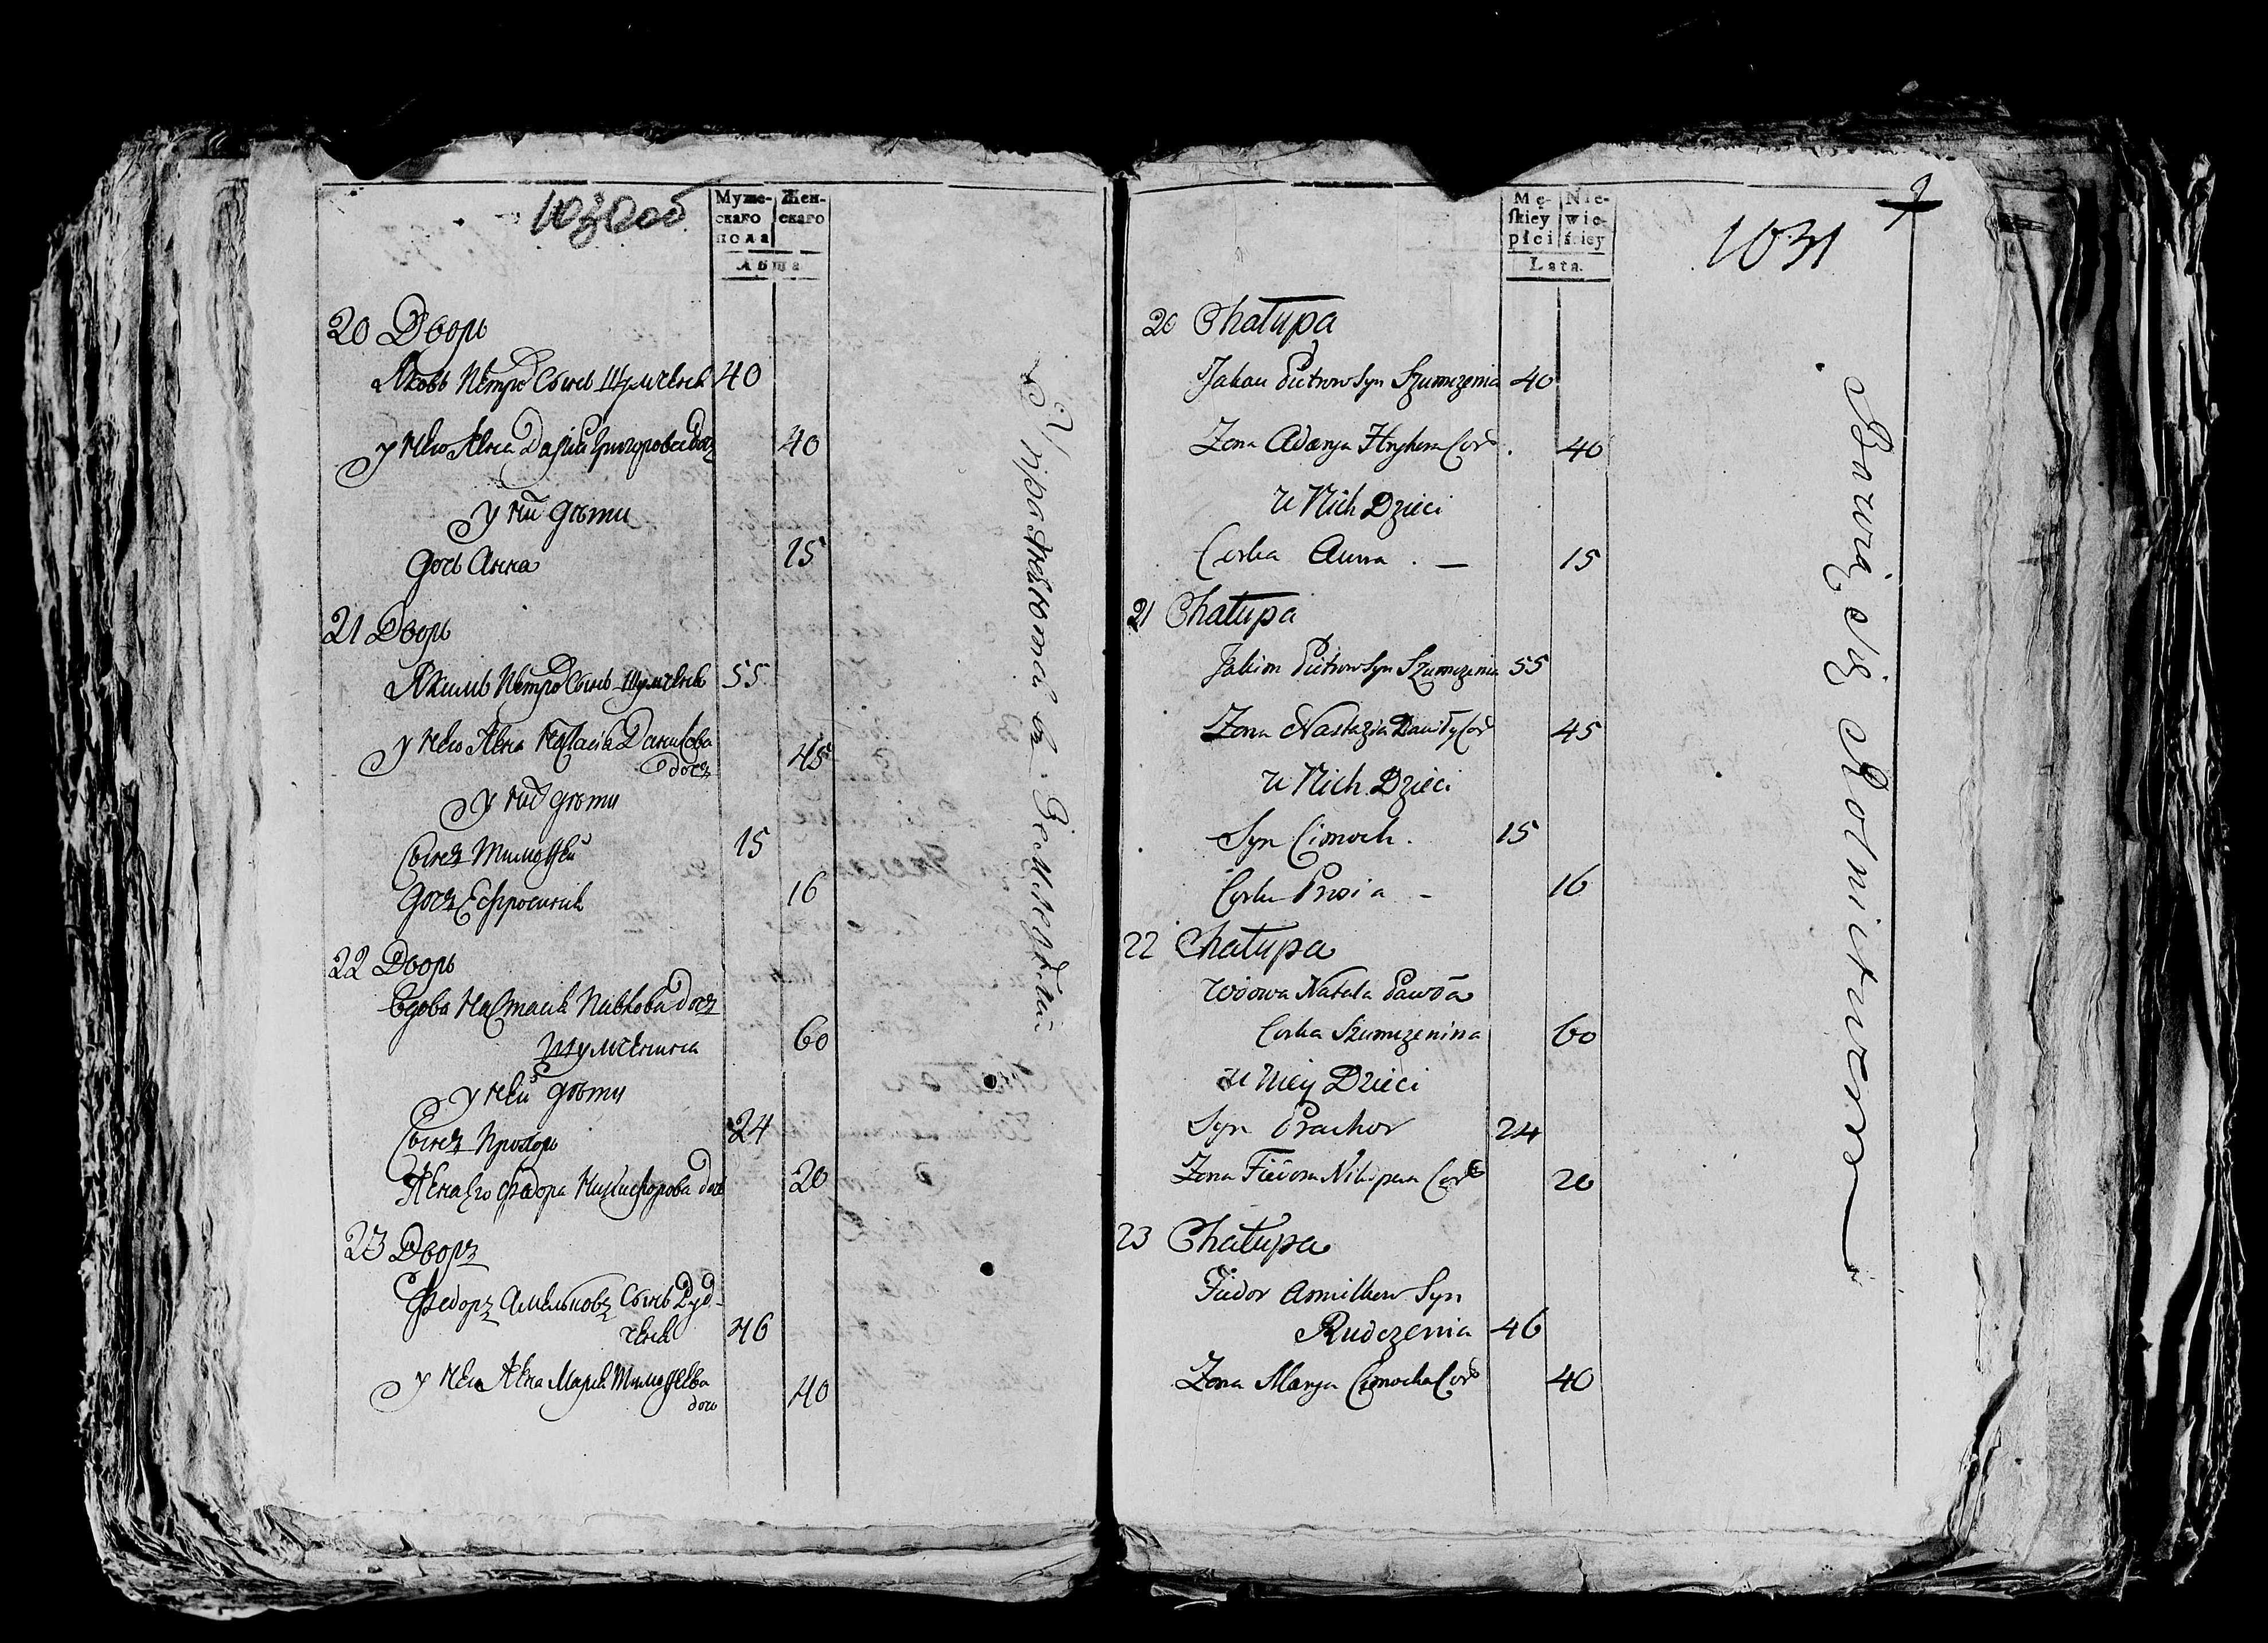 1030об
Муже-
скаго
пола
Жен-
скаго
Лѣта
20 Дворъ
Яковъ Петровъ Сынъ Шумченя 40
у него Жена Дарья Григорьева дочъ 40
у нихъ дѣти
дочь Анна 15
21 Дворъ
Якимъ Петровъ Сынъ Шумченя 55
у него Жена Настасія Данилова
дочъ 45
у нихъ дѣти
Сынъ Тимофей 15
дочъ Ефросинія 16
22 Дворъ
Вдова Настасія Павлова дочъ
Шумченина 60
у ней дѣти
Сынъ Прохоръ 24
Жена его Федора Никифорова дочъ 20
23 Дворъ
Федоръ Амельновъ Сынъ Руд-
ченя 46
у него Жена Марья Тимофеева
дочь 40
Mę-
skiey
płci
Nie-
wie-
ściey
Lata.
1031
20 Chałupa
Jakow Pietrow Syn Szumczenia 40
Zona Adarya Hryhora Cor. 40
u Nich Dzieci
Corka Anna . — 15
21 Chałupa
Jakim Pietrow Syn Szumczenia 55
Zona Nastazia Daniły Cor 45
u Nich Dzieci
Syn Cimoch. 15
Corka Prosia - 16
22 Chałupa
Wdowa Natala Pawła
Corka Szumczenina 60
u Niey Dzieci
Syn Prachor 24
Zona Fiedora Nikipara Cor 20
23 Chałupa
Fiedor Amilkow Syn
Rudczenia 46
Zona Marya Cimocha Cor 40